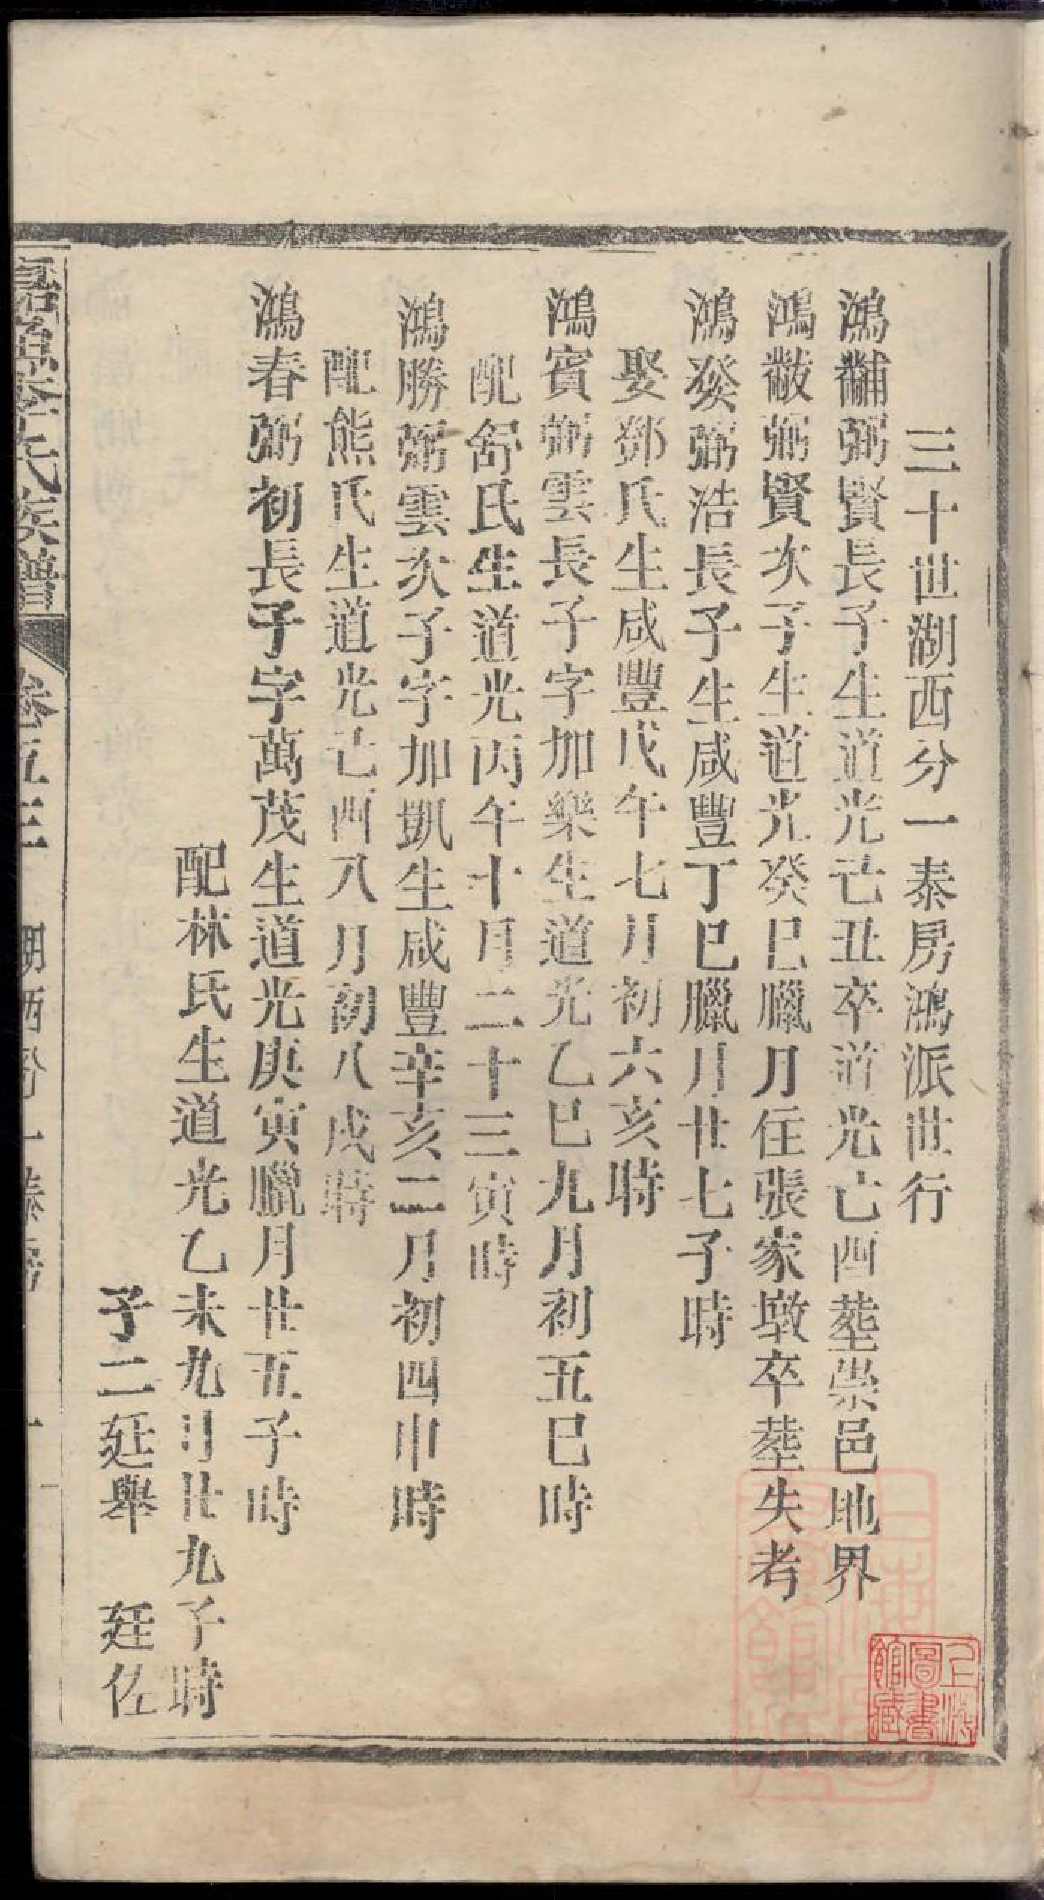 三十世湖西分一泰房鴻派世行
鴻黼弼賢長子生道光己丑卒道光己酉塟崇邑地界
鴻黻弼賢次子生道光癸巳臘月住張家墩卒塟失考
鴻癸弼浩長子生咸豐丁巳臘月廿七子時
娶鄧氏生咸豐戊午七月初六亥時
鴻賓弼雲長子字加樂生道光乙巳九月初五巳時
配舒氏生道光丙午十月二十三寅時
鴻勝弼雲次子字加凱生咸豐辛亥二月初四申時
配熊氏生道光己酉八月初八戌時
鴻春弼初長子字萬茂生道光庚寅臘月廿五子時
配林氏生道光乙未九月廿九子時
子二廷舉 廷佐
嘉魚李氏族譜 卷五三 湖西分一泰房
上海圖書館藏